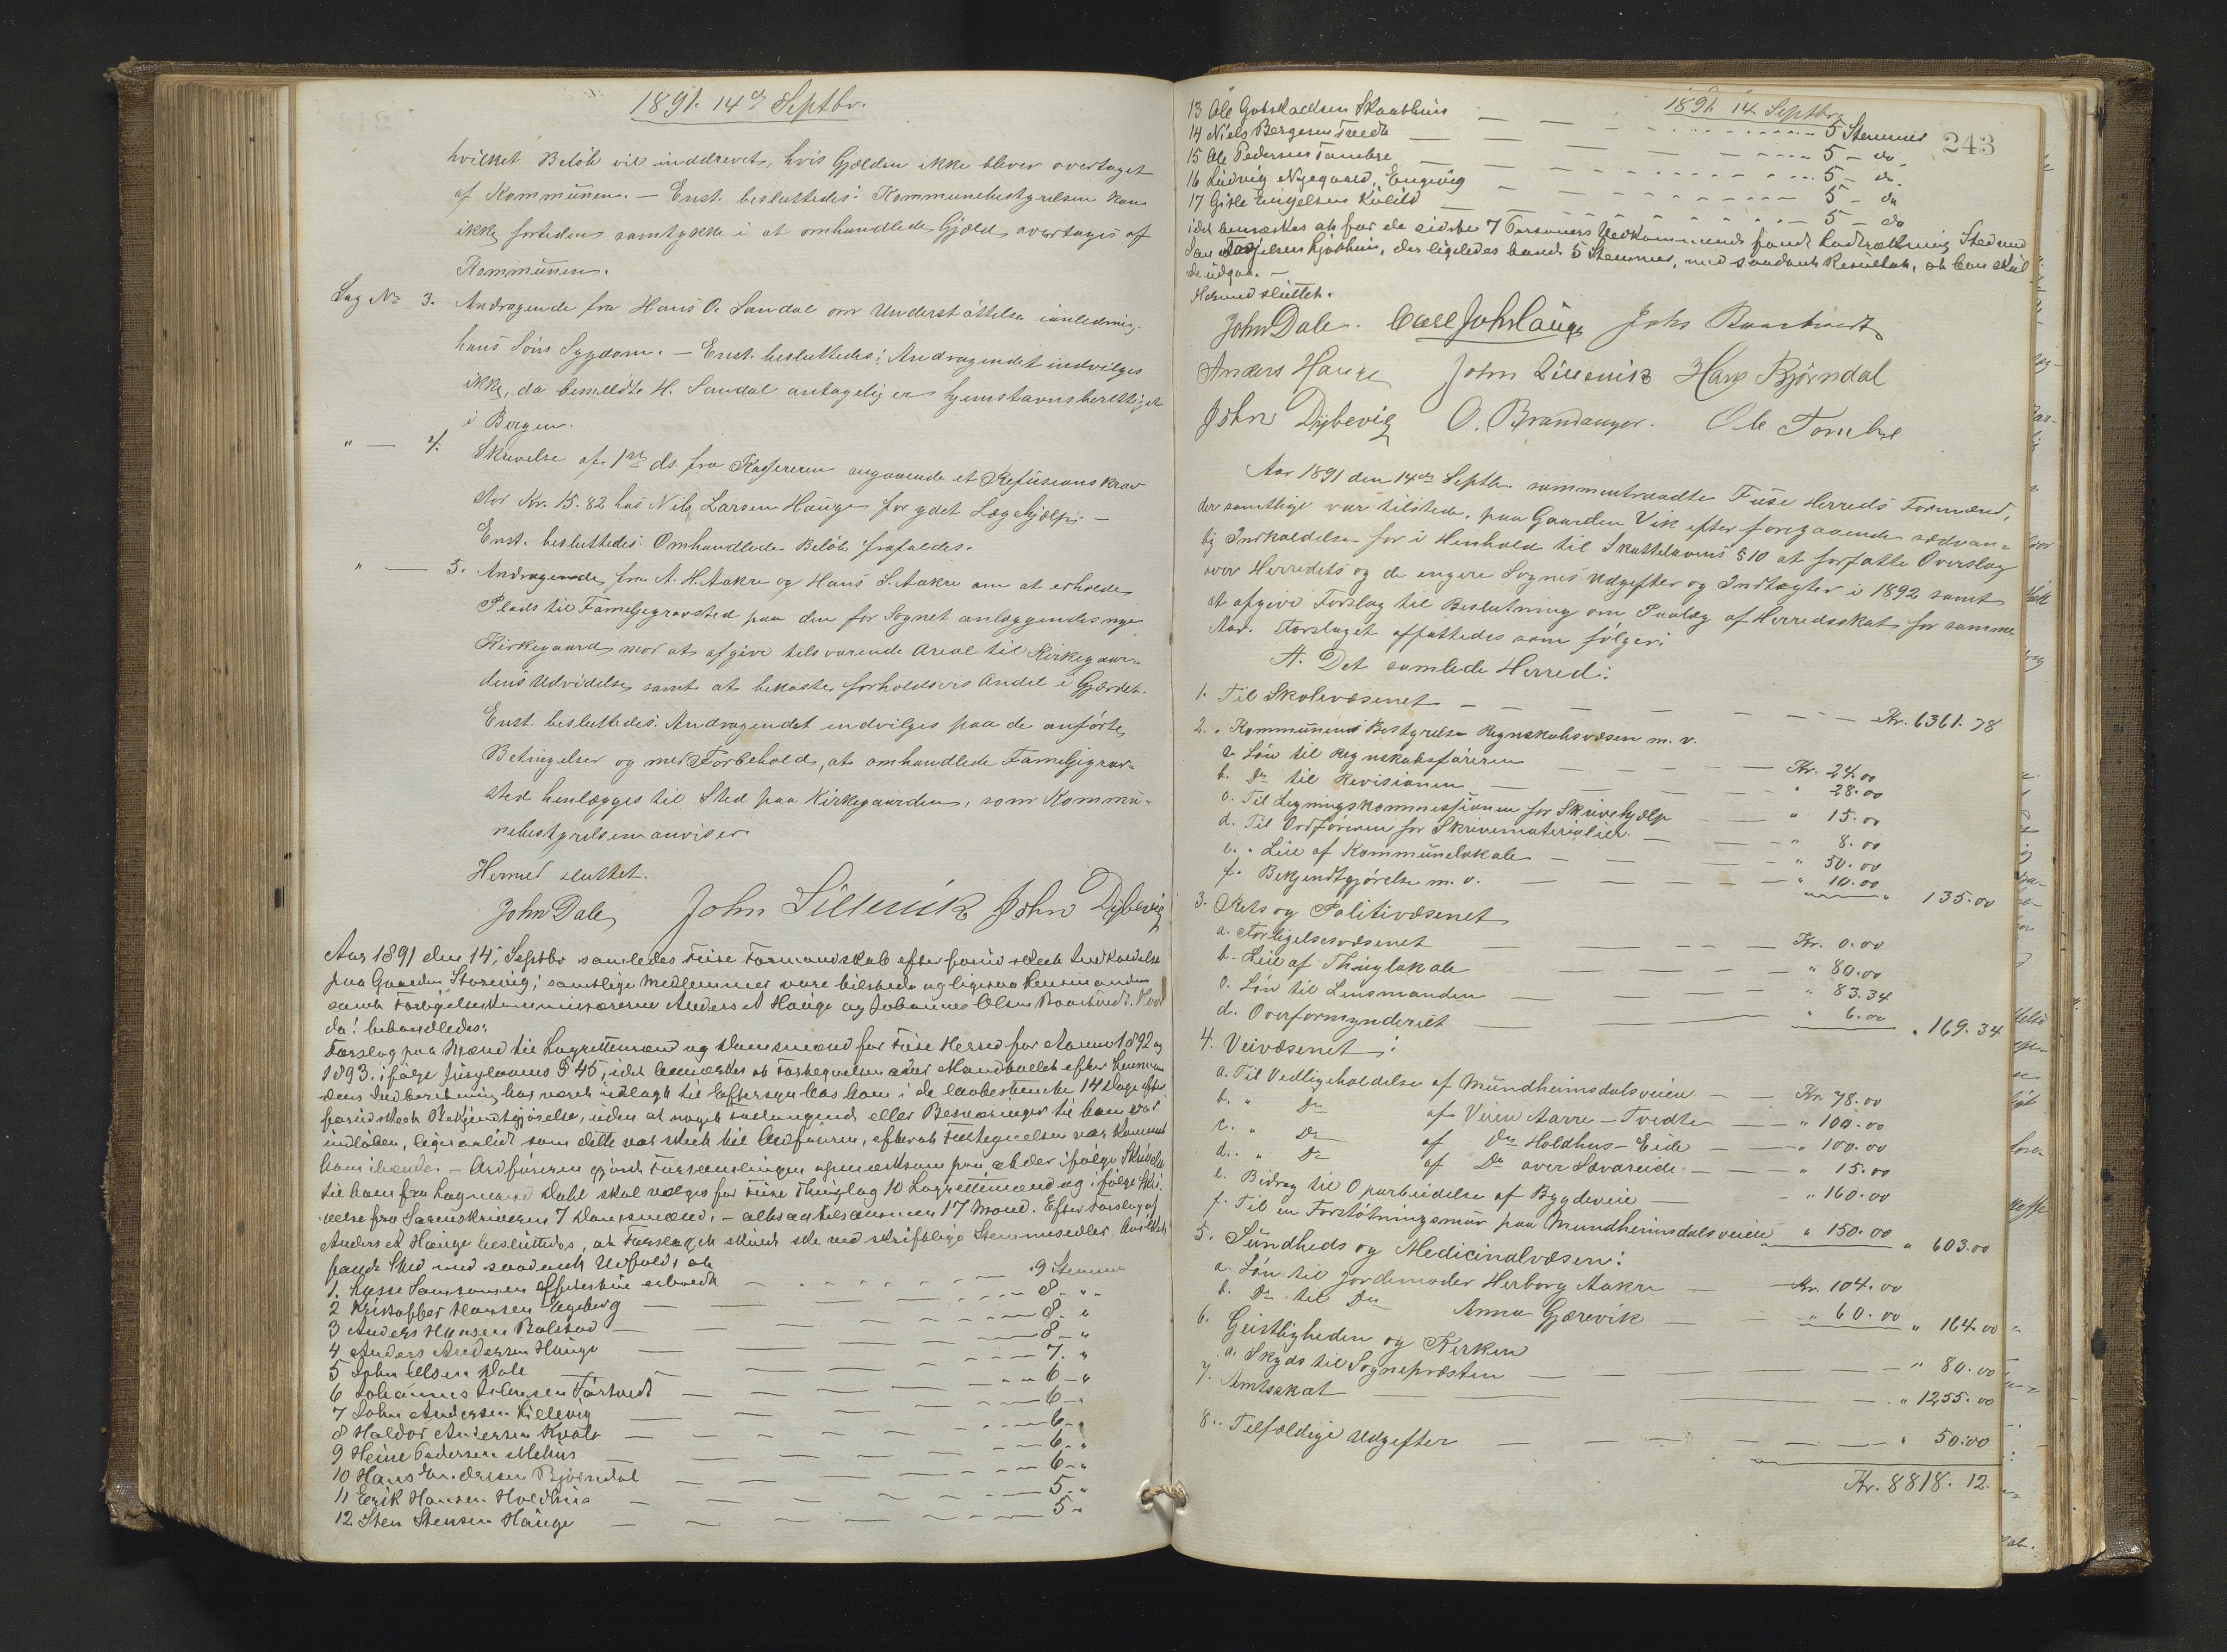 1891. 14de Septbr.
hvilket Beløb vil inddrevet, hvis Gjælden ikke bliver overtaget
af Kommunen. — Enst. besluttedes: Kommunebestyrelsen kan
ikke fortiden samtykke i at omhandlede Gjæld overtages af
Kommunen.
Sag No 3. Andragende fra Hans O. Sandal om Understøttelse ianledning
hans Søns Sygdom. — Enst. besluttedes: Andragendet indvilges
ikke, da bemeldte H. Sandal antagelig er hjemstavnsberettiget
i Bergen.
" — 4. Skrivelse af 1ste ds. fra Kassereren angaaende et Refusionskrav
stor Kr. 15.82 hos Nils Larsen Hauge for ydet Lægehjælp; —
Enst. besluttedes: Omhandlede Beløb frafaldes.
" — 5. Andragende fra A. H. Aakre og Hans S. Aakre om at erholde
Plads til Familjegravsted paa den for Sognet anlæggendes nye
Kirkegaard mod at afgive tilsvarende Areal til Kirkegaar=
dens Udvidelse samt at bekoste forholdsvis Andel i Gjærdet.
Enst. besluttedes: Andragendet indvilges paa de anførte
Betingelser og med Forbehold, at omhandlede Familjegrav=
sted henlægges til Sted paa Kirkegaarden, som Kommu=
nebestyrelsen anviser.
Hermed sluttet.
John Dale John Lillevik John Dybevig
Aar 1891 den 14. Septbr samledes Fuse Formandskab efter forudskeet Indkaldelse
paa Gaarden Storevig; samtlige Medlemmer vare tilstede og ligesaa Lensmanden
samt Forligelseskommissærerne Anders A Hauge og Johannes Olsen Baartvedt. Hvor
da! behandledes:
Forslag paa Mænd til Lagrettemænd og Domsmænd for Fuse Herred for Aarene 1892 og
1893. ifølge Jurylovens § 45, idet bemærkes at Fortegnelsen over Mandtallet efter Lensman
dens Indberetning har været udlagt til Eftersyn hos ham i de lovbestemte 14 Dage efter
forudskeet Bekjendtgjørelse, uden at noget Forlangende eller Besværinger til ham var
indløben, ligesaalidt som dette var skeet til Ordføreren, efterat Fortegnelsen var kommet
ham ihænde. — Ordføreren gjorde Forsamlingen opmærksom paa, at der ifølge Skrivelse
til ham fra Lagmand Dahl skal vælges for Fuse Thinglag 10 Lagrettemænd og ifølge Skri=
velse fra Sorenskriveren 7 Domsmænd, — altsaa tilsammen 17 Mænd. Efter Forslag af
Anders A Hauge besluttedes, at Forslaget skulde ske ved skriftlige Stemmesedler, hvilket
fandt Sted med saadant Udfald, at
1. Lasse Samsonsen — 9 Stemmer
2 Kristoffer Hansen Engeberg — 8 - "
3 Anders Hansen Bolstad — 8. "
4 Anders Andersen Hauge — 8 - "
5 John Olsen Dale — 7. "
6 Johannes Johnsen Tørtvedt — 6 - "
7 John Andersen Lillevig — 6 - "
8 Haldor Andersen Kvale — 6 - "
9 Heine Pedersen Mehus — 6 - "
10 Hans Endresen Bjørndal — 6 - "
11 Erik Hansen Holdhus — 5 - "
12 Sten Stensen Hauge — 5 "
1891. 14 Septbr.
243
13 Ole Gotskalksen Skaathun — 5 Stemmer
14 Niels Børgesen Tvedt — 5 — do.
15 Ole Pedersen Tombre — 5 — do.
16 Ludvig Nygaard, Engevig — 5 — do
17 Gitle Engelsen Kulild — 5 — do
idet bemærkes at for de sidste 7 Personers Vedkommende fandt Lodtrækning Sted med
der ligeledes havde 5 Stemmer, med saadant Resultat, at han skul
de udgaa. —
Hermed sluttet.
John Dale. Carl Joh Lange Johs Baartvedt
Anders Hauge John Lillevik Hans Bjørndal
John Dybevig O. Brandanger. Ole Tombre
Aar 1891 den 14de Septbr. sammentraadte Fuse Herreds Formænd,
der samtlige var tilstede, paa Gaarden Vik efter foregaaende sædvan=
lig Indkaldelse for i Henhold til Skattelovens § 10 at forfatte Overslag
over Herredets og de engere Sognes Udgifter og Indtægter i 1892 samt
at afgive Forslag til Beslutning om Paalæg af Herredsskat for samme
Aar. Forslaget affattedes som følger:
A. Det samlede Herred:
1. Til Skolevæsenet — Kr. 6361.78
2. " Kommunens Bestyrelse Regnskabsvæsen m. v.
a. Løn til Regnskabsføreren — Kr. 24.00
b. Do til Revisionen — " 28.00
c. Til Ligningskommissionen for Skrivehjælp — " 15.00
d. Til Ordføreren for Skrivematerialier — " 8.00
e. " Leie af Kommunelokale — " 50.00
f. Bekjendtgjørelse m. v. — " 10.00
" 135.00
3. Rets og Politivæsenet
a. Forligelsesvæsenet — Kr. 0.00
b. Leie af Thinglokale — " 80.00
c. Løn til Lensmanden — " 83.34
d. Overformynderiet — " 6.00
" 169.34
4. Veivæsenet:
a. Til Vedligeholdelse af Mundheimsdalsveien — Kr. 78.00
b. " Do af Veien Aarre - Tvedte — " 100.00
c. " Do af Do Holdhus - Eide — " 100.00
d. " Do af Do over Sævareide — " 15.00
e. Bidrag til Oparbeidelse af Bygdeveie — " 160.00
f. Til en Forstøtningsmur paa Mundheimsdalsveien " 150.00
" 603.00
5. Sundheds og Medicinalvæsen:
a. Løn til Jordemoder Herborg Aakre — Kr. 104.00
b. Do til Do Anna Gjærevik — " 60.00 " 164.00
6. Geistligheden og Kirken
a. Skyds til Sognepræsten — " 80.00
7. Amtsskat — " 1255.00
8. Tilfældige Udgifter — " 50.00
Kr. 8818.12.